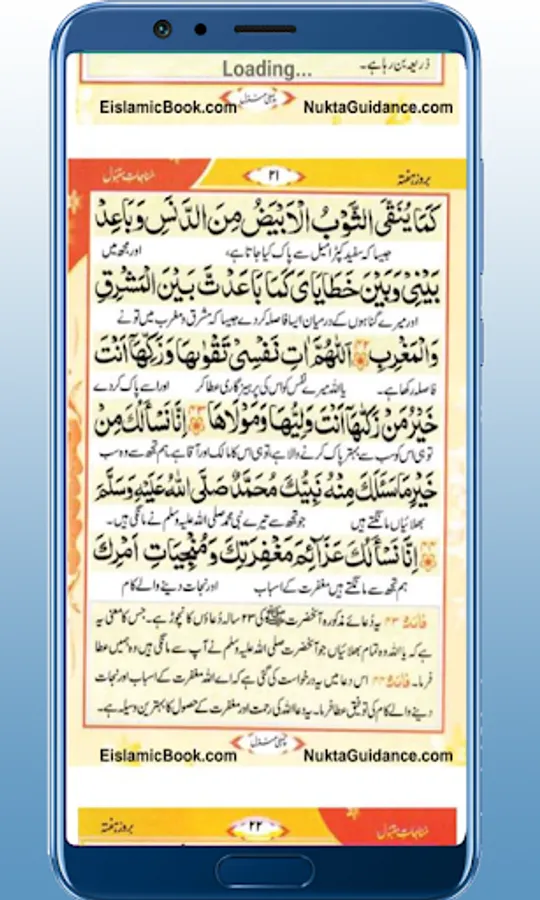 ذریعہ بن رہا ہے۔
Loading...
EislamicBook.com پہلی منزل NuktaGuidance.com
مُناجاتِ مقبول ۲۱ بروز ہفتہ
كَمَا يُنَقَّى الثَّوْبُ الْاَبْيَضُ مِنَ الدَّنَسِ وَبَاعِدْ
جیسا کہ سفید کپڑا میل سے پاک کیا جاتا ہے، اور مجھ میں
بَيْنِيْ وَبَيْنَ خَطَايَايَ كَمَا بَاعَدْتَّ بَيْنَ الْمَشْرِقِ
اور میرے گناہوں کے درمیان ایسا فاصلہ کر دے جیسا کہ مشرق و مغرب میں تو نے
وَالْمَغْرِبِ ۴۲ اَللّٰهُمَّ اٰتِ نَفْسِيْ تَقْوٰىهَا وَزَكِّهَا اَنْتَ
فاصلہ رکھا ہے۔ یا اللہ میرے نفس کو اس کی پرہیزگاری عطا کر اور اسے پاک کر دے
خَيْرُ مَنْ زَكّٰهَا اَنْتَ وَلِيُّهَا وَمَوْلَاهَا ۴۳ اِنَّا نَسْأَلُكَ مِنْ
تو ہی اس کو سب سے بہتر پاک کرنے والا ہے، تو ہی اس کا مالک اور آقا ہے، ہم تجھ سے وہ سب
خَيْرِ مَا سَئَلَكَ مِنْهُ نَبِيُّكَ مُحَمَّدٌ صَلَّى اللهُ عَلَيْهِ وَسَلَّمَ
بھلائیاں مانگتے ہیں جو تجھ سے تیرے نبی محمد صلی اللہ علیہ وسلم نے مانگی ہیں۔
۴۴ اِنَّا نَسْأَلُكَ عَزَآئِمَ مَغْفِرَتِكَ وَمُنْجِيَاتِ اَمْرِكَ
ہم تجھ سے مانگتے ہیں مغفرت کے اسباب اور نجات دینے والے کام
فائدہ ۴۳ یہ دُعائے مذکورہ آنحضرت ﷺ کی ۲۳ سالہ دُعاؤں کا نچوڑ ہے۔ جس کا معنی یہ
ہے کہ یا اللہ وہ تمام بھلائیاں جو آنحضرت صلی اللہ علیہ وسلم نے آپ سے مانگی ہیں وہ ہمیں عطا
فرما۔ فائدہ ۴۴ اس دعا میں یہ درخواست کی گئی ہے کہ اے اللہ مغفرت کے اسباب اور نجات
دینے والے کام کی توفیق عطا فرما۔ یہ دعا اللہ کی رحمت اور مغفرت کے حصول کا بہترین وسیلہ ہے۔
EislamicBook.com پہلی منزل NuktaGuidance.com
بروز ہفتہ ۲۲ مُناجاتِ مقبول